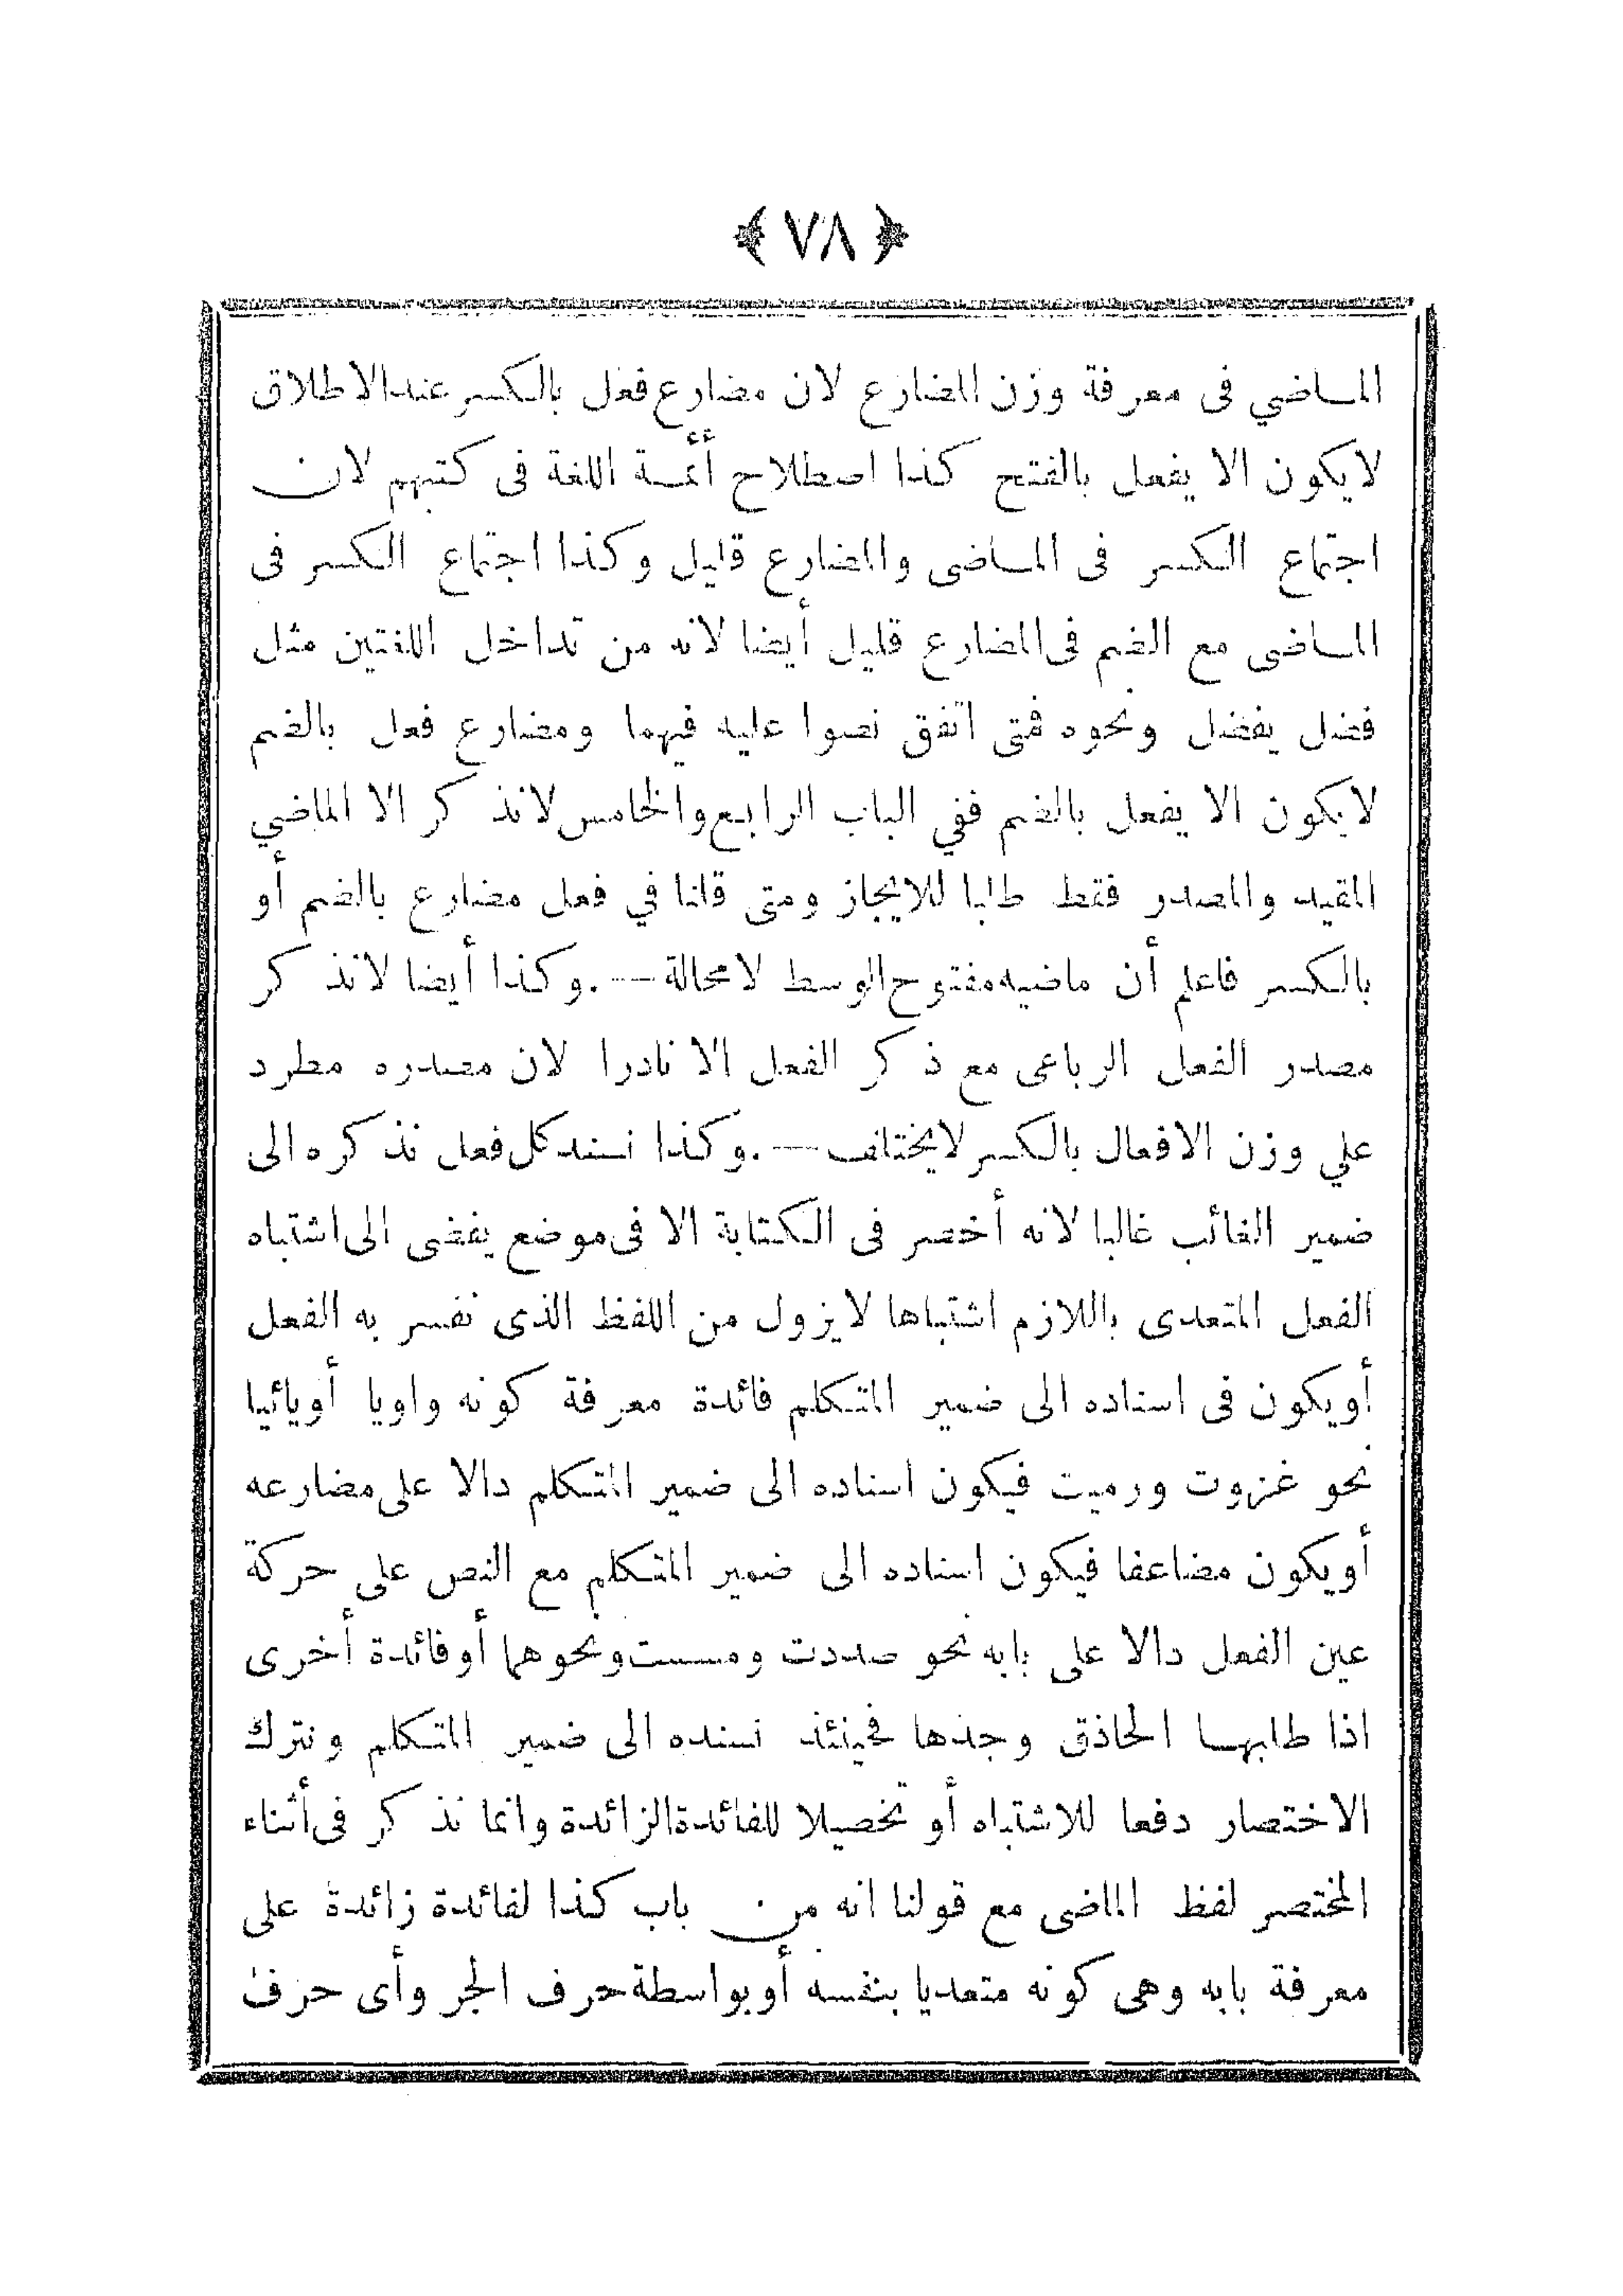 ﴿ ٧٨ ﴾
الماضي فى معرفة وزن المضارع لان مضارع فعل بالكسر عند الاطلاق
لا يكون الا يفعل بالفتح كذا اصطلاح أئمة اللغة فى كتبهم لان
اجتماع الكسر فى الماضى والمضارع قليل وكذا اجتماع الكسر فى
الماضى مع الضم فى المضارع قليل أيضا لانه من تداخل اللغتين مثل
فضل يفضل ونحوه فمتى اتفق نصوا عليه فيهما ومضارع فعل بالضم
لا يكون الا يفعل بالضم ففي الباب الرابع والخامس لا نذكر الا الماضي
المقيد والمصدر فقط طلبا للايجاز ومتى قلنا في فعل مضارع بالضم أو
بالكسر فاعلم أن ماضيه مفتوح الوسط لا محالة —. وكذا أيضا لا نذكر
مصدر الفعل الرباعى مع ذكر الفعل الا نادرا لان مصدره مطرد
علي وزن الافعال بالكسر لا يختلف —. وكذا نسند كل فعل نذكره الى
ضمير الغائب غالبا لانه أخصر فى الكتابة الا فى موضع يفضى الى اشتباه
الفعل المتعدى باللازم اشتباها لا يزول من اللفظ الذى نفسر به الفعل
أو يكون فى اسناده الى ضمير المتكلم فائدة معرفة كونه واويا أو يائيا
نحو غزوت ورميت فيكون اسناده الى ضمير المتكلم دالا على مضارعه
أو يكون مضاعفا فيكون اسناده الى ضمير المتكلم مع النص على حركة
عين الفعل دالا على بابه نحو صددت ومسست ونحوهما أو فائدة أخرى
اذا طلبها الحاذق وجدها فحينئذ نسنده الى ضمير المتكلم ونترك
الاختصار دفعا للاشتباه أو تحصيلا للفائدة الزائدة وانما نذكر فى أثناء
المختصر لفظ الماضى مع قولنا انه من باب كذا لفائدة زائدة على
معرفة بابه وهى كونه متعديا بنفسه أو بواسطة حرف الجر وأى حرف